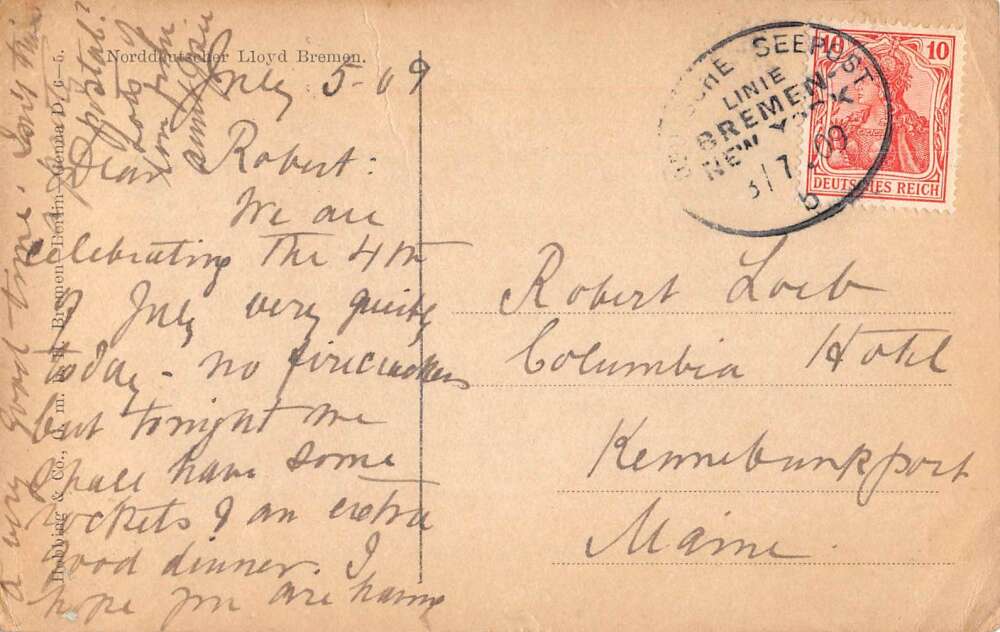 Norddeutscher Lloyd Bremen.
July 5-09
Dear Robert:
We are
celebrating the 4th
of July very quietly
today - no firecrackers
but tonight we
shall have some
rockets & an extra
good dinner. I
hope you are having
a very good time. Isn't this
a postal?
Lots of
love from
DEUTSCHE SEEPOST
LINIE
BREMEN-
NEW YORK
3/7 09
b
10 10
DEUTSCHES REICH
Robert Loeb
Columbia Hotel
Kennebunkport
Maine.
Hobbing & Co., G. m. b. H. Bremen-Berlin-Vienna D. 6-5.